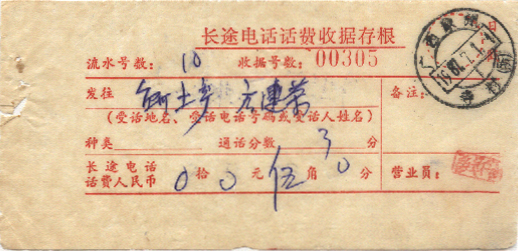 长途电话话费收据存根
流水号数：10 收据号数：00305
发往 土产 方连荣 备注：
（受话地名、受话电话号码或受话人姓名）
种类 通话分数 3 分
长途电话话费人民币 0 拾 0 元 伍 角 0 分 营业员：